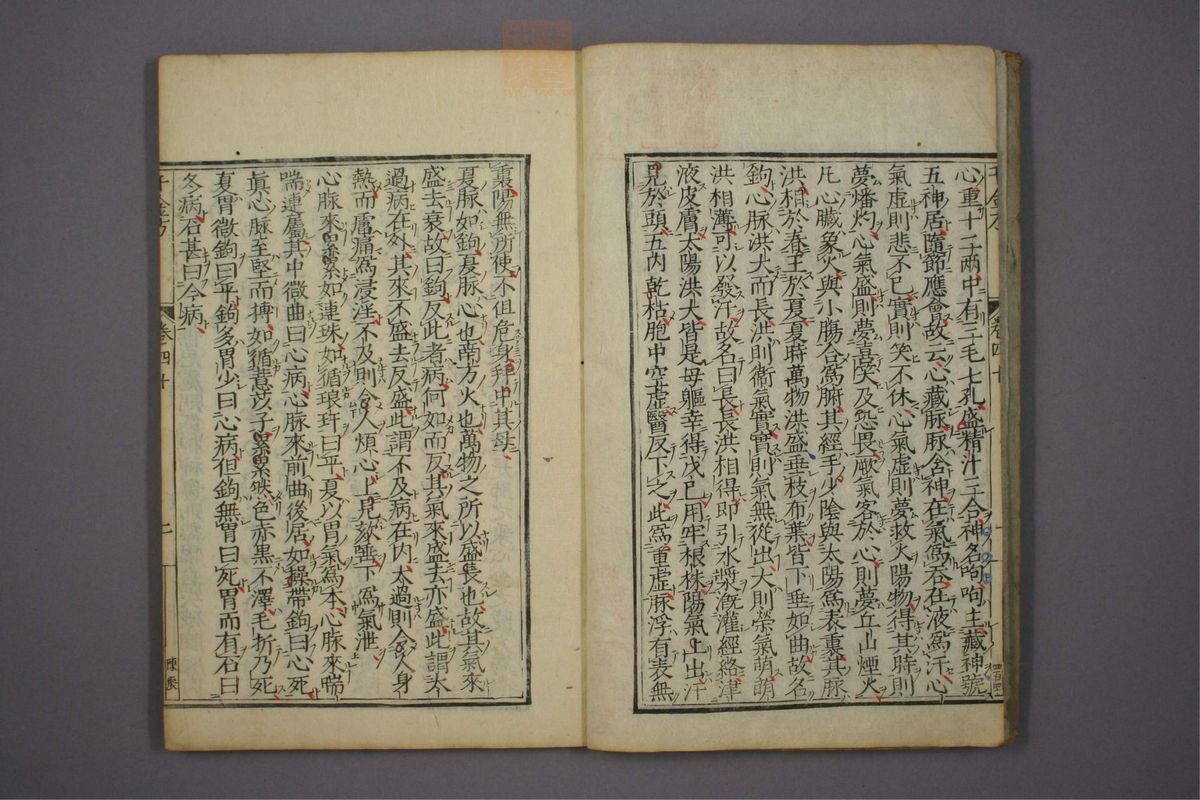 心重十二兩中有三毛七孔盛精汁三合神名呴呴主藏神號
五神居隨節應會故云心藏脉脉舍神在氣爲吞在液爲汗心
氣虛則悲不已實則笑不休心氣虛則夢救火陽物得其時則
夢燔灼心氣盛則夢喜笑及恐畏厥氣客於心則夢丘山煙火
凡心臟象火與小腸合爲腑其經手少陰與太陽爲表裏其脉
洪相於春王於夏夏時萬物洪盛垂枝布葉皆下垂如曲故名
鉤心脉洪大而長洪則衞氣實實則氣無從出大則榮氣萌萌
洪相薄可以發汗故名曰長長洪相得即引水漿漑灌經絡津
液皮膚太陽洪大皆是母軀幸得戊己用牢根株陽氣上出汗
見於頭五内乾枯胞中空虛醫反下之此爲重虛脉浮有表無
千金方
卷四十
裏陽無所使不但危身拜中其母
夏脉如鉤夏脉心也南方火也萬物之所以盛長也故其氣來
盛去衰故曰鉤反此者病何如而反其氣來盛去亦盛此謂太
過病在外其來不盛去反盛此謂不及病在内太過則令人身
熱而膚痛爲浸淫不及則令人煩心上見欬唾下爲氣泄
心脉來累累如連珠如循琅玕曰平夏以胃氣爲本心脉來喘
喘連屬其中微曲曰心病心脉來前曲後居如操帶鉤曰心死
眞心脉至堅而摶如循薏苡子累累然色赤黒不澤毛折乃死
夏胃微鉤曰平鉤多胃少曰心病但鉤無胃曰死胃而有石曰
冬病石甚曰今病
千金方
卷四十
二